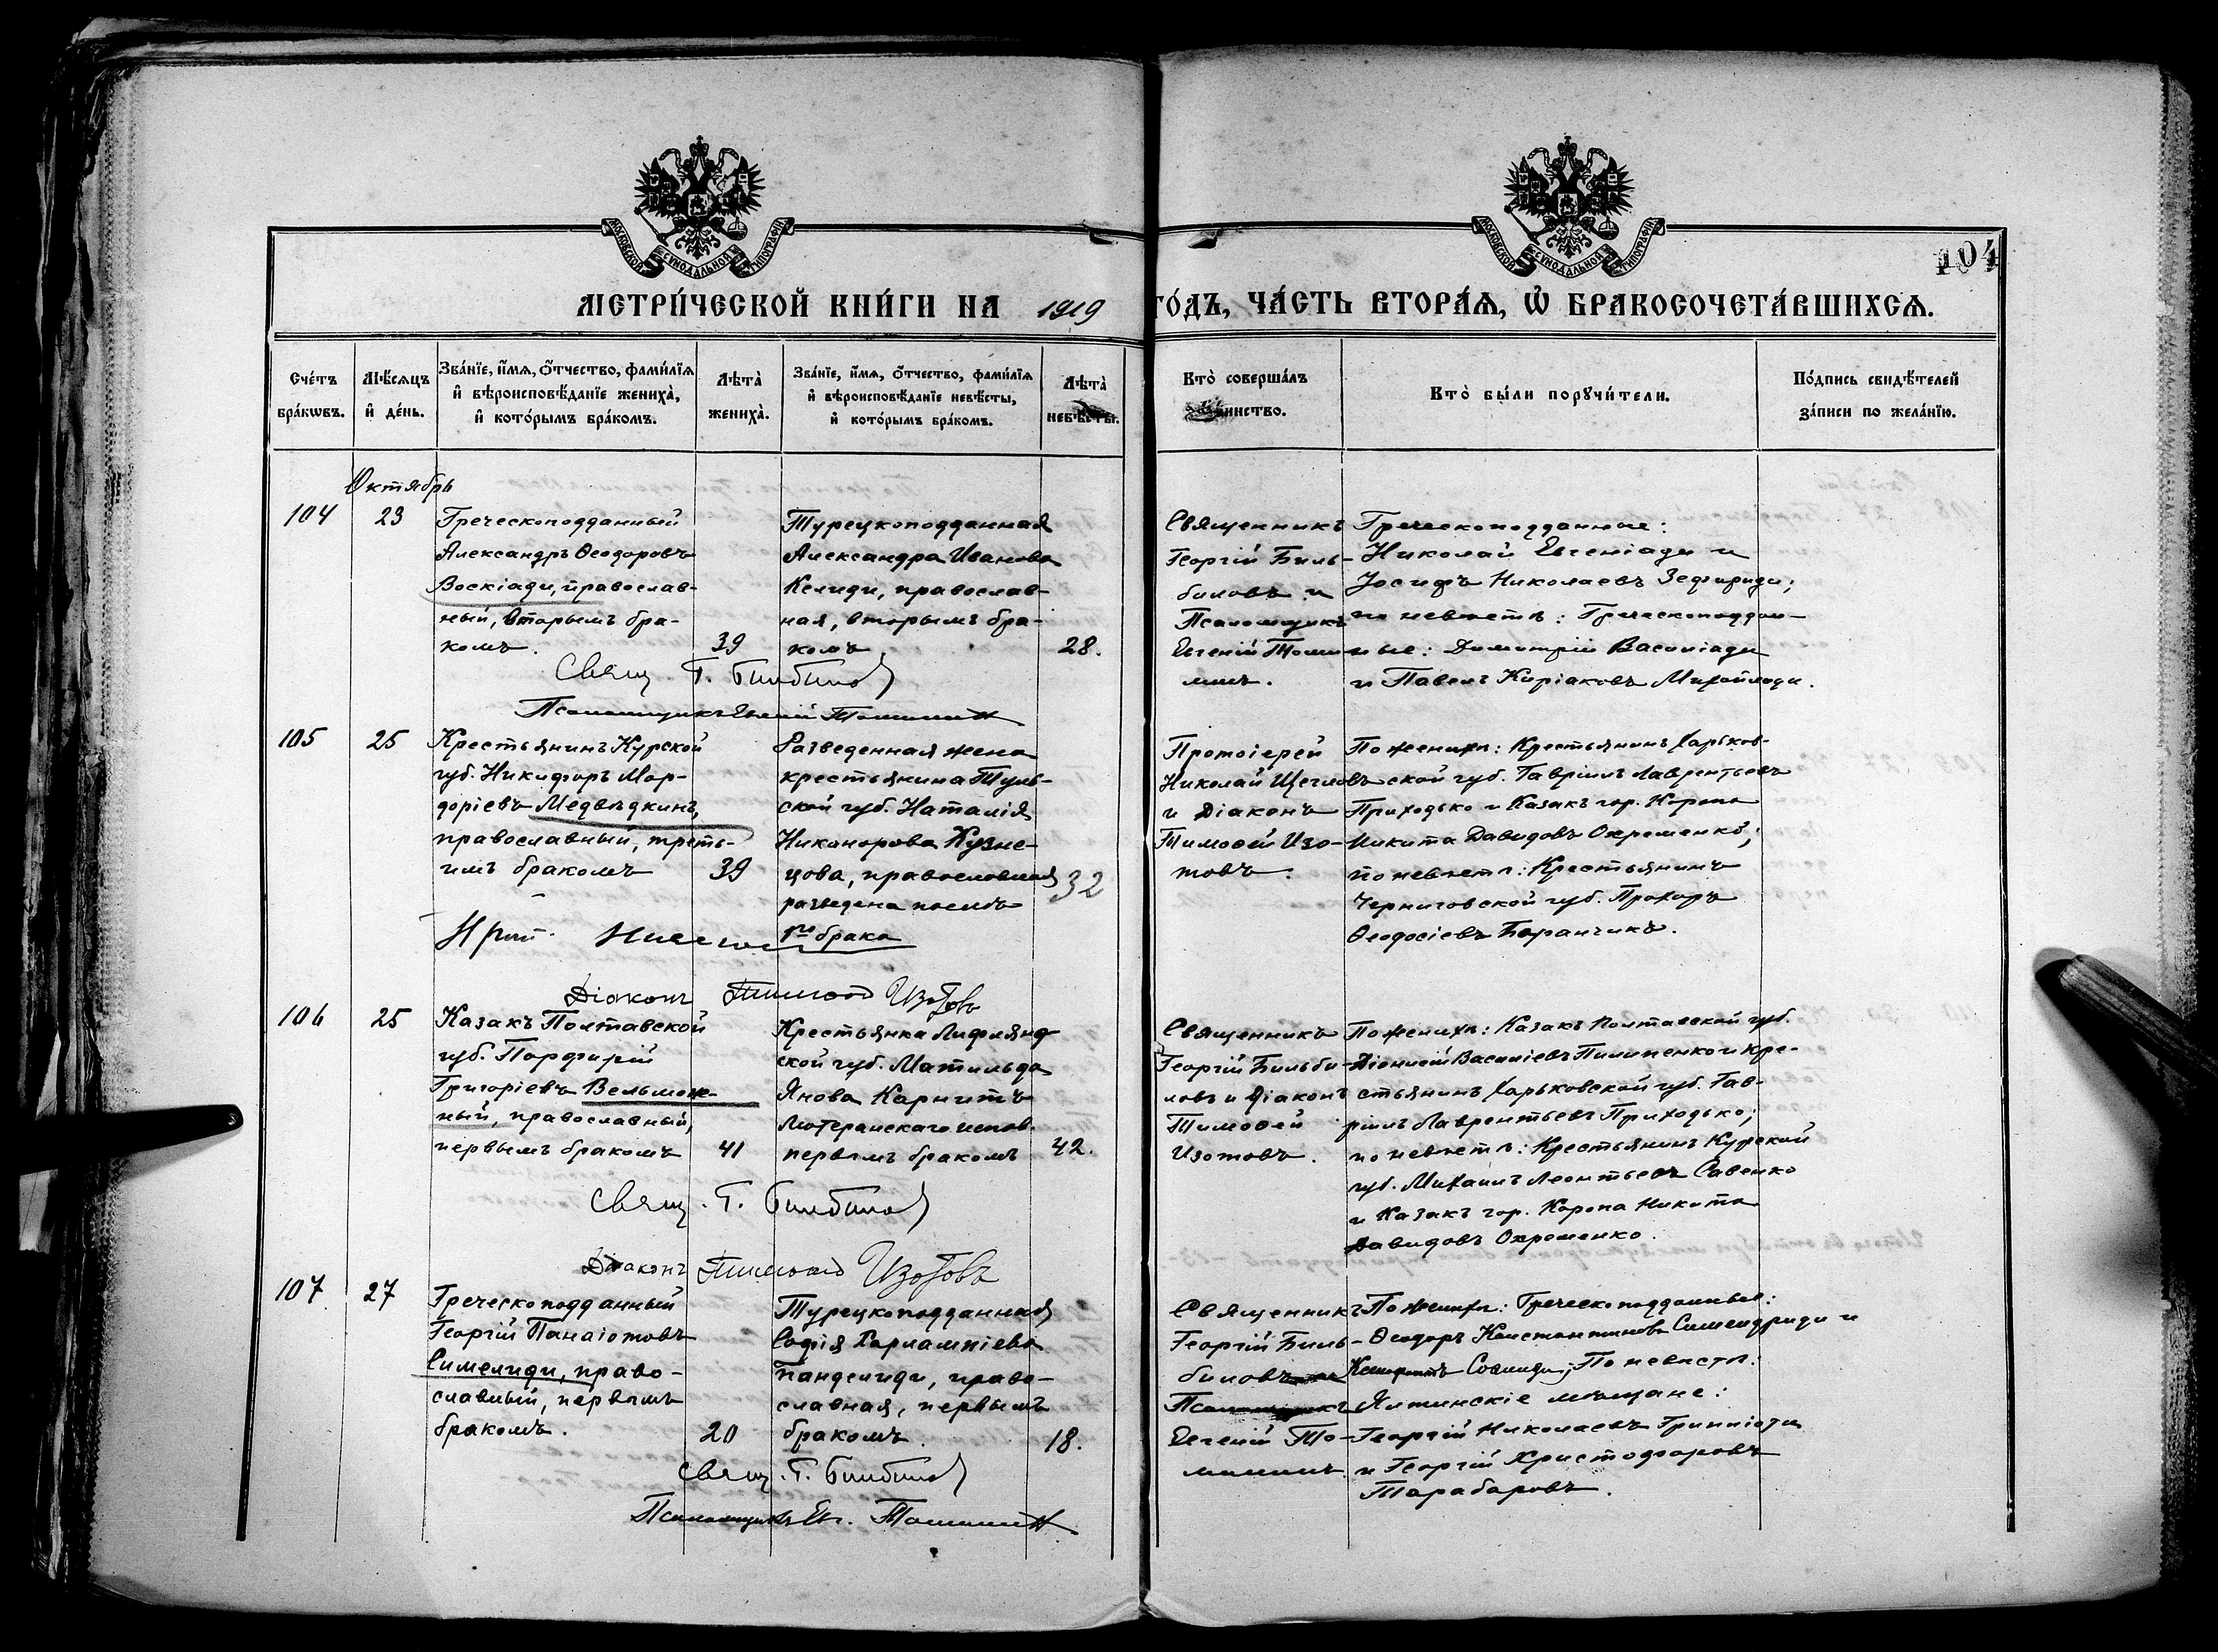 МОСКОВСКОЙ СѴНОДАЛЬНОЙ ТИПОГРАФІИ
МОСКОВСКОЙ СѴНОДАЛЬНОЙ ТИПОГРАФІИ
104
МЕТРИ́ЧЕСКОЙ КНИ́ГИ НА 1919 ГО́ДЪ, ЧА́СТЬ ВТОРА́Ѧ, Ѽ БРАКОСОЧЕТА́ВШИХСѦ.
Сче́тъ
бра́кѡвъ.
Мѣ́сѧцъ
и҆ де́нь.
Зва́нїе, и҆́мѧ, ѻ҆́тчество, фами́лїѧ
и҆ вѣроисповѣ́данїе жениха̀,
и҆ кото́рымъ бра́комъ.
Лѣта̀
жениха̀.
Зва́нїе, и҆́мѧ, ѻ҆́тчество, фами́лїѧ
и҆ вѣроисповѣ́данїе невѣ́сты,
и҆ кото́рымъ бра́комъ.
Лѣта̀
невѣ́сты.
Кто̀ соверша́лъ
таинство.
Кто̀ бы́ли порꙋчи́тели.
По́дпись свидѣ́телей
за́писи по жела́нїю.
Октябрь
104
23
Греческоподданный
Александръ Ѳеодоровъ
Воскіади, православ-
ный, вторымъ бра-
комъ.
39
Турецкоподданная
Александра Иванова
Келиди, православ-
ная, вторымъ бра-
комъ
28.
Священникъ
Георгій Биль-
биловъ и
Псаломщикъ
Евгеній Томи-
линъ.
Греческоподданные:
Николай Евгеніади и
Іосифъ Николаевъ Зефириди;
по невѣстѣ: Греческоподдан-
ные: Димитрій Василіади
и Павелъ Киріаковъ Михайлиди.
Свящ. Г. Бильбиловъ
Псаломщикъ Евгеній Томилинъ
105
25
Крестьянинъ Курской
губ. Никифоръ Мар-
даріевъ Медвѣдкинъ,
православный, треть-
имъ бракомъ
39
Разведенная жена
крестьянина Туль-
ской губ. Наталія
Никонорова Кузне-
цова, православная
разведена послѣ
1го брака
32
Протоіерей
Николай Щегловъ
и Діаконъ
Тимоѳей Изо-
товъ.
По женихѣ: Крестьянинъ Харьков-
ской губ. Гавріилъ Лаврентьевъ
Приходько и Казакъ гор. Коропа
Никита Давидовъ Охременко;
по невѣстѣ: Крестьянинъ
Черниговской губ. Прохоръ
Ѳеодосіевъ Баранчикъ.
Прот.
Діаконъ Тимоѳей Изотовъ
106
25
Казакъ Полтавской
губ. Порфирій
Григоріевъ Вельмож-
ный, православный,
первымъ бракомъ
41
Крестьянка Лифлянд
ской губ. Матильда
Янова Карнитъ
Лютеранскаго испов.
первымъ бракомъ
42.
Священникъ
Георгій Бильби-
ловъ и Діаконъ
Тимоѳей
Изотовъ.
По женихѣ: Казакъ Полтавской губ.
Діонисій Василіевъ Пилипенко и кре-
стьянинъ Харьковской губ. Гав-
ріилъ Лаврентьевъ Приходько;
по невѣстѣ: Крестьянинъ Курской
губ. Михаилъ Леонтьевъ Савенко
и Казакъ гор. Коропа Никита
Давидовъ Охременко.
Свящ. Г. Бильбиловъ
Діаконъ Тимоѳей Изотовъ
107
27
Греческоподданный
Георгій Панаіотовъ
Симелиди, право-
славный, первымъ
бракомъ.
20
Турецкоподданная
Софія Харлампіева
Панделиди, право-
славная, первымъ
бракомъ.
18.
Священникъ
Георгій Биль-
биловъ и
Псаломщикъ
Евгеній То-
милинъ
По женихѣ: Греческоподданные:
Ѳеодоръ Константиновъ и
По невѣстѣ:
Ялтинскіе мѣщане:
Георгій Николаевъ
и Георгій Христофоровъ
Тарабаровъ.
Свящ. Г. Бильбиловъ
Псаломщикъ Ев. Томилинъ